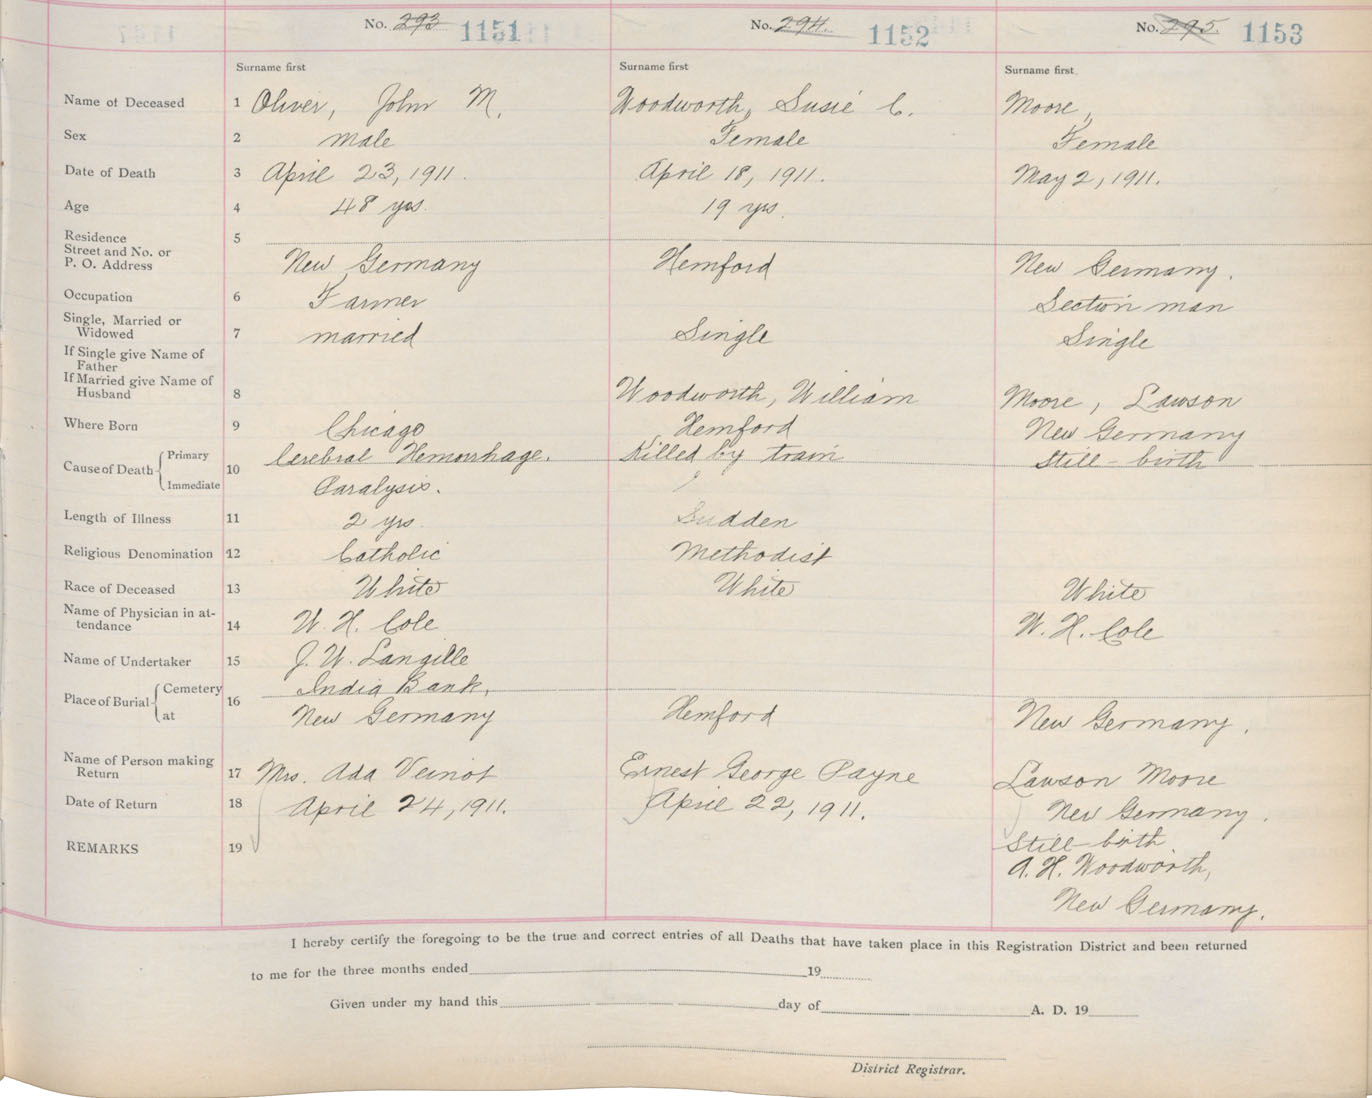 No. 293 1151 No. 294. 1152 No. 295. 1153
Surname first Surname first Surname first
Name of Deceased 1 Oliver, John M. Woodworth, Susie C. Moore,
Sex 2 male Female Female
Date of Death 3 April 23, 1911. April 18, 1911. May 2, 1911.
Age 4 48 yrs. 19 yrs.
Residence 5
Street and No. or
P. O. Address New Germany Hemford New Germany.
Occupation 6 Farmer Section man
Single, Married or
Widowed 7 married Single Single
If Single give Name of
Father
If Married give Name of
Husband 8 Woodworth, William Moore, Lawson
Where Born 9 Chicago Hemford New Germany
Cause of Death Primary 10 Cerebral Hemorrhage. Killed by train Still-birth
Immediate Paralysis.
Length of Illness 11 2 yrs. Sudden
Religious Denomination 12 Catholic Methodist
Race of Deceased 13 White White White
Name of Physician in at-
tendance 14 W. H. Cole W. H. Cole
Name of Undertaker 15 J. W. Langille
Place of Burial Cemetery 16 India Bank,
at New Germany Hemford New Germany.
Name of Person making
Return 17 Mrs. Ada Veinot Ernest George Payne Lawson Moore
Date of Return 18 April 24, 1911. April 22, 1911. New Germany.
REMARKS 19 Still-birth
A. H. Woodworth,
New Germany.
I hereby certify the foregoing to be the true and correct entries of all Deaths that have taken place in this Registration District and been returned
to me for the three months ended 19
Given under my hand this day of A. D. 19
District Registrar.